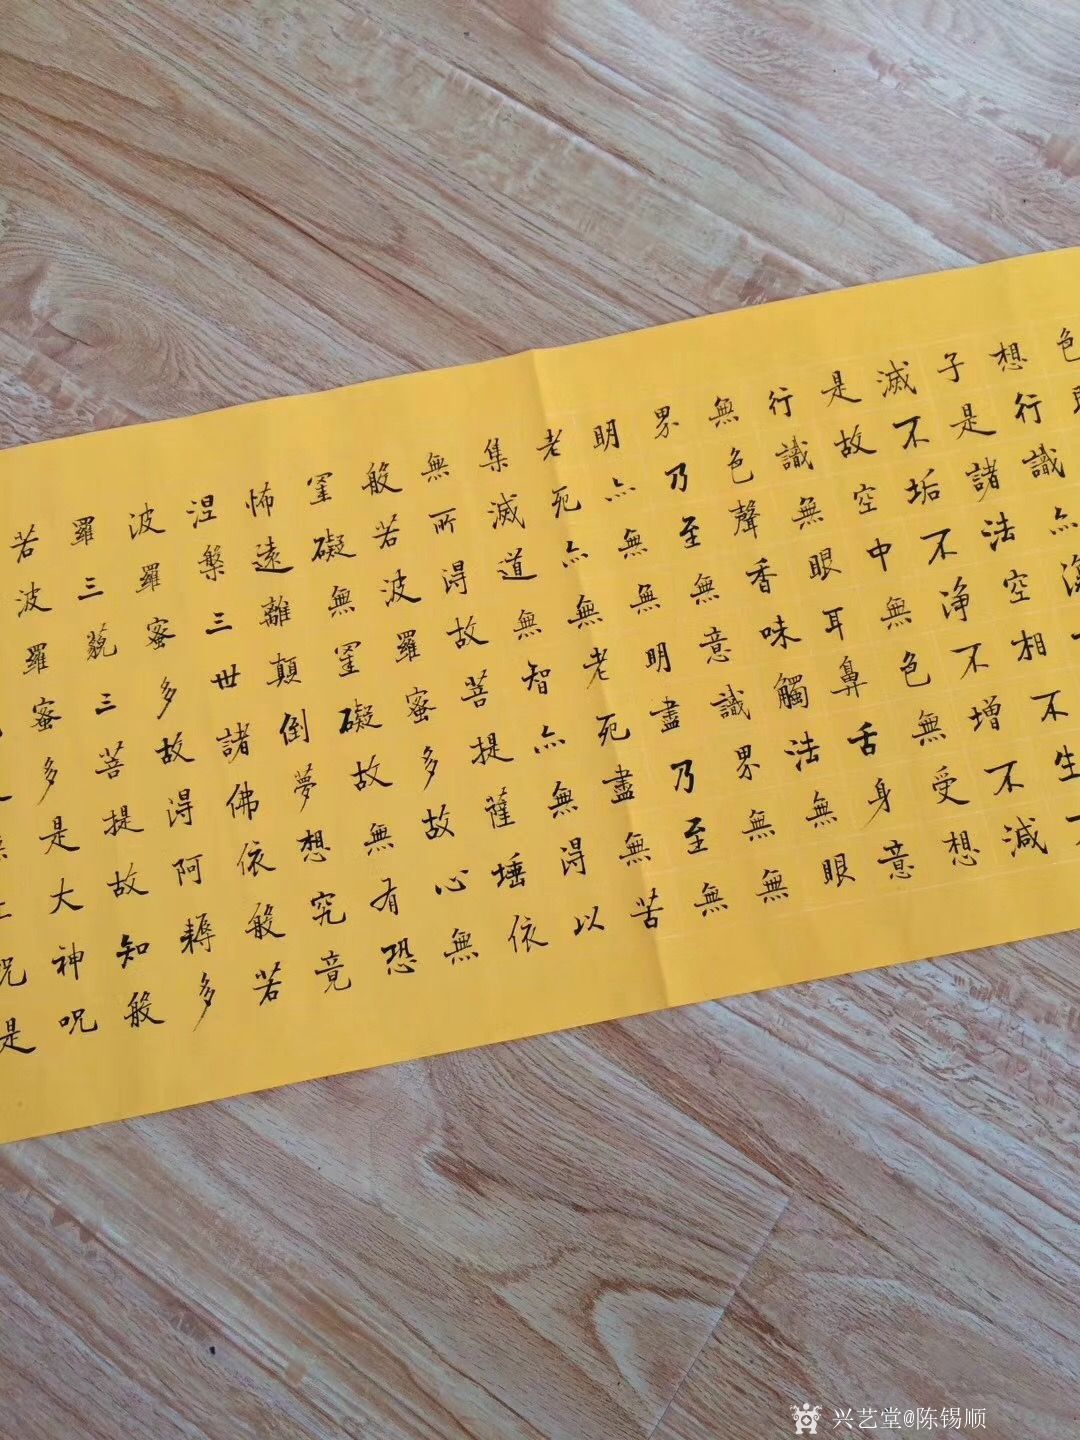 色
想行識亦
子是諸法空相不生不
滅不垢不净不增不減
是故空中無色無受想
行識無眼耳鼻舌身意
無色聲香味觸法無眼
界乃至無意識界無無
明亦無無明盡乃至無
老死亦無老死盡無苦
集滅道無智亦無得以
無所得故菩提薩埵依
般若波羅蜜多故心無
罣礙無罣礙故無有恐
怖遠離顛倒夢想究竟
涅槃三世諸佛依般若
波羅蜜多故得阿耨多
羅三藐三菩提故知般
若波羅蜜多是大神呪
呪是
兴艺堂@陈锡顺